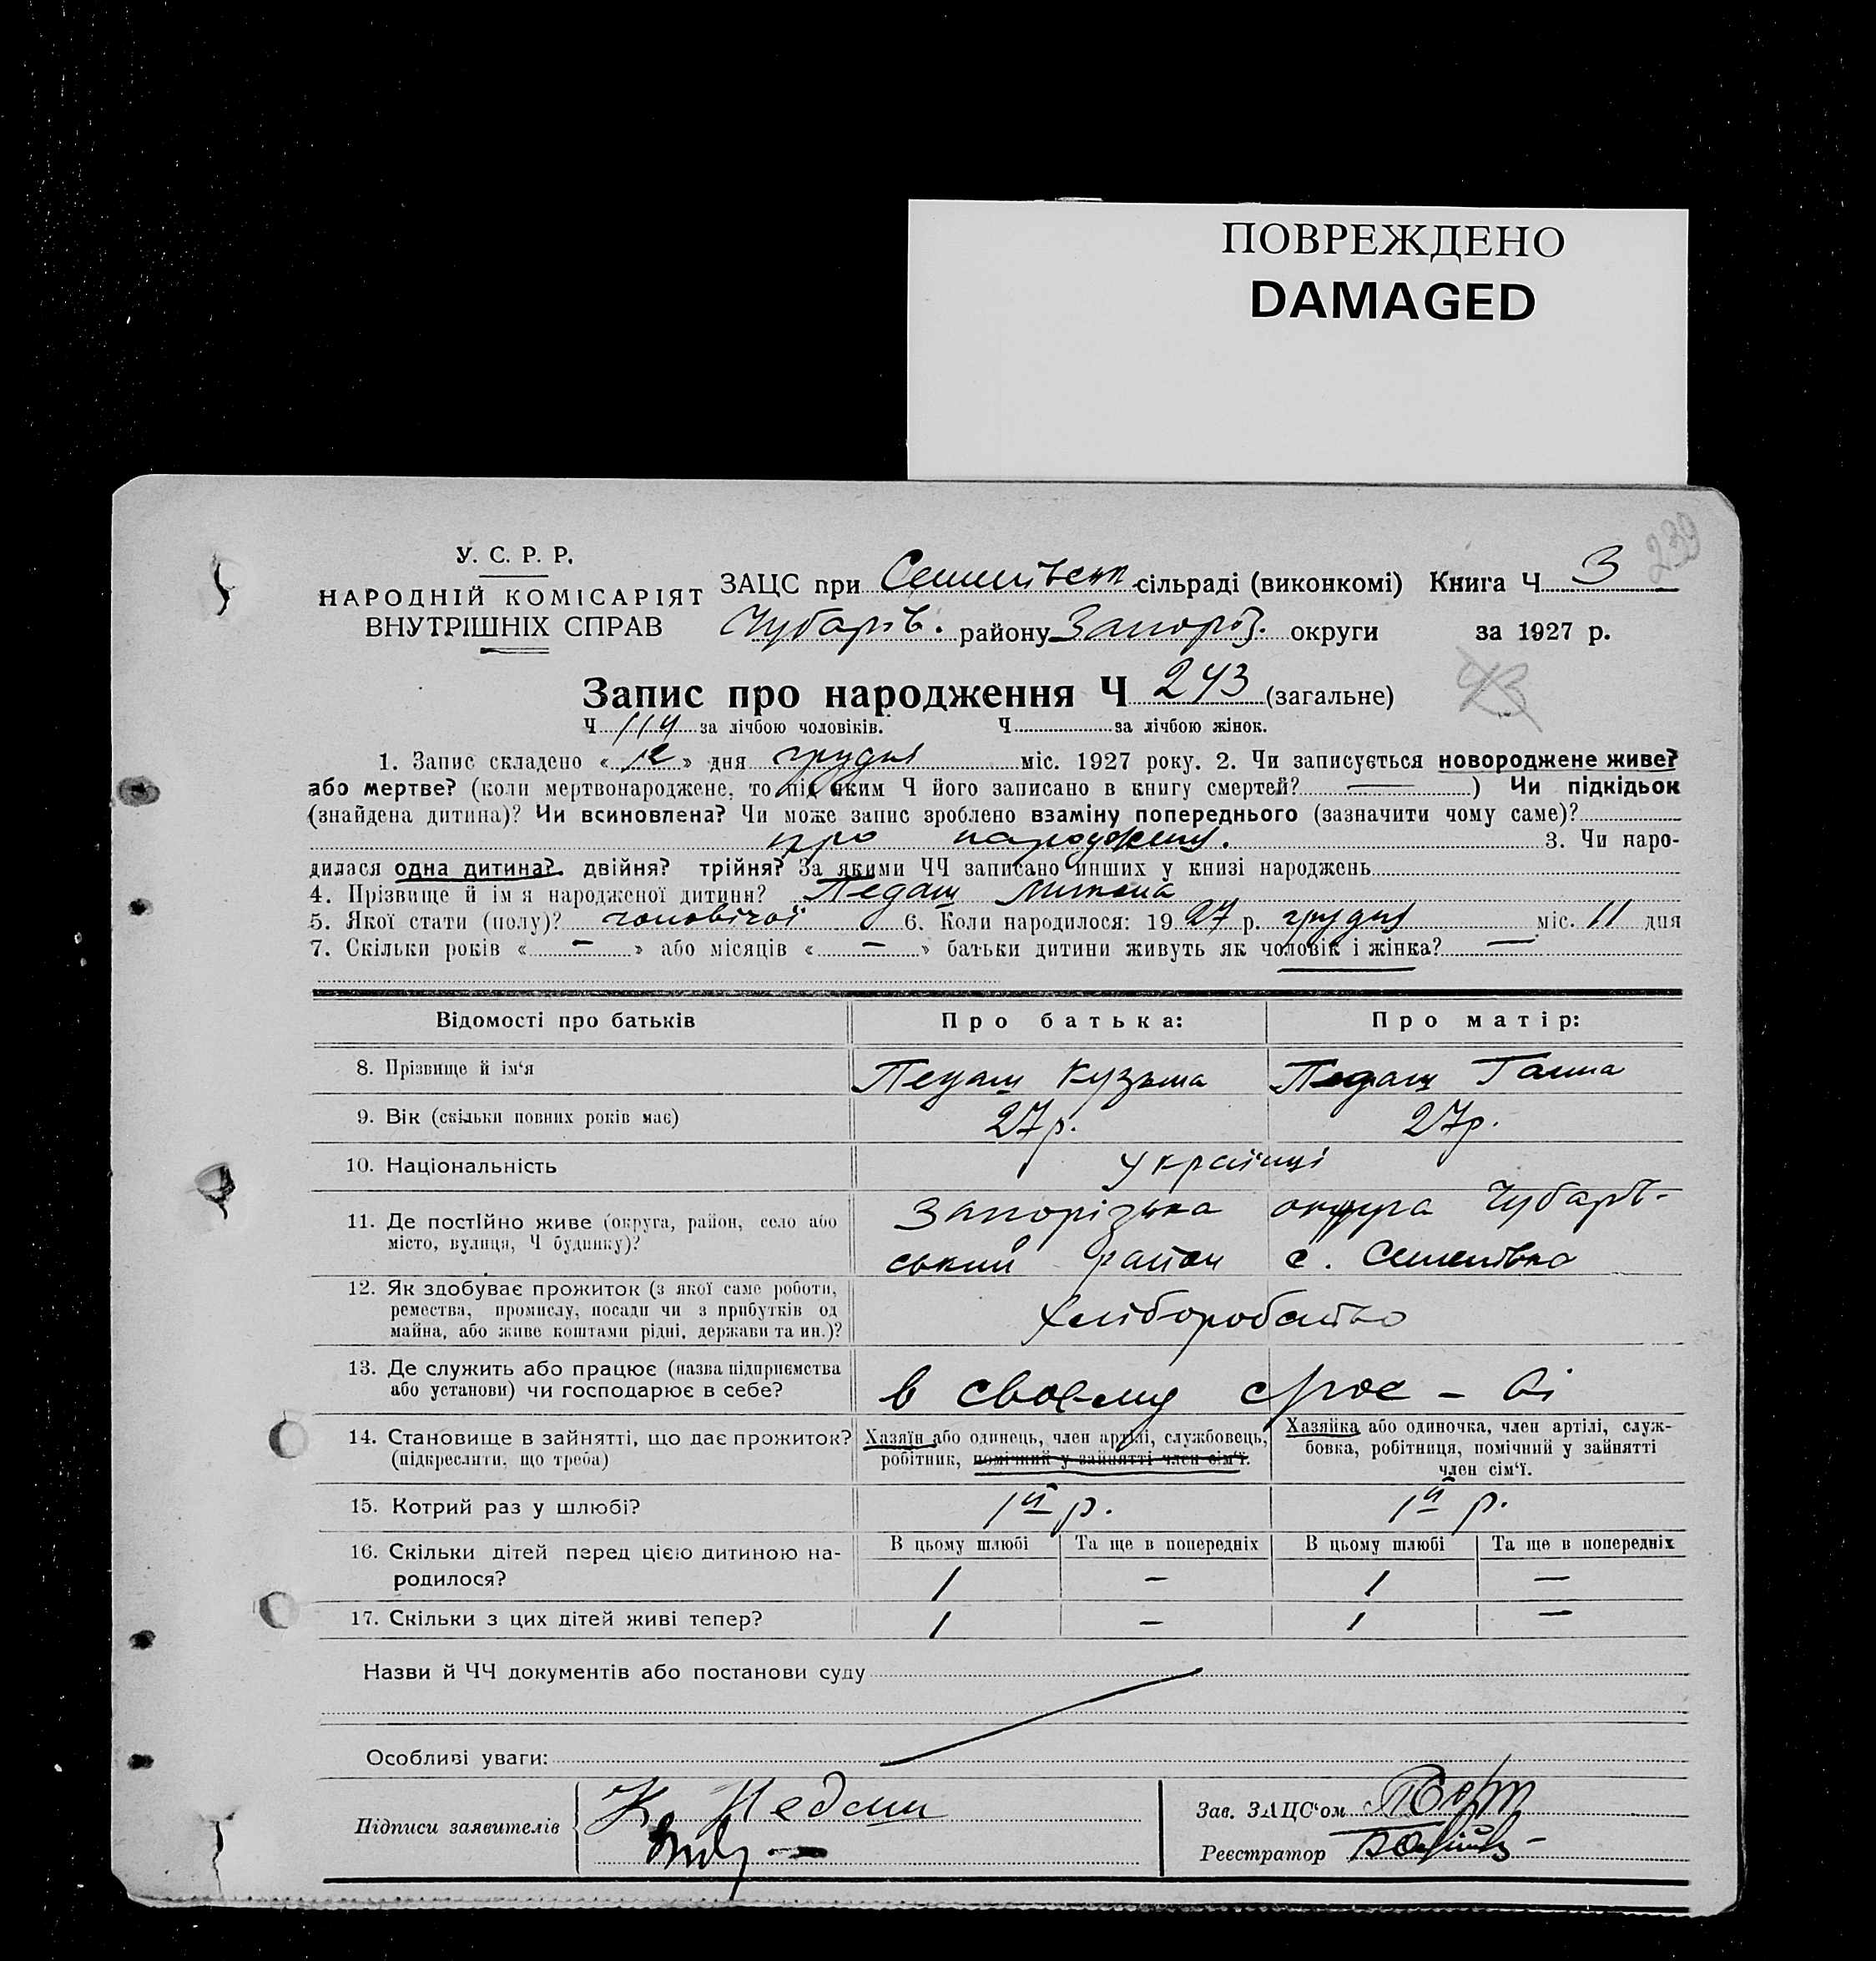 ПОВРЕЖДЕНО
DAMAGED
239
У. С. Р. Р.
НАРОДНІЙ КОМІСАРІЯТ
ВНУТРІШНІХ СПРАВ
ЗАЦС при Семенівськ. сільраді (виконкомі) Книга Ч. 3
Чубарів. району Запоріз. округи за 1927 р.
Запис про народження Ч 243 (загальне)
43
Ч 114 за лічбою чоловіків. Ч за лічбою жінок.
1. Запис складено « 12 » дня грудня міс. 1927 року. 2. Чи записується новороджене живе?
або мертве? (коли мертвонароджене, то під яким Ч його записано в книгу смертей? — ) Чи підкідьок
(знайдена дитина)? Чи всиновлена? Чи може запис зроблено взаміну попереднього (зазначити чому саме)?
про народження. 3. Чи наро-
дилася одна дитина? двійня? трійня? За якими ЧЧ записано инших у книзі народжень
4. Прізвище й ім я народженої дитини? Педаш Микола
5. Якої стати (полу)? чоловічої 6. Коли народилося: 1927 р. грудня міс. 11 дня
7. Скільки років « — » або місяців « — » батьки дитини живуть як чоловік і жінка? —
Відомості про батьків Про батька: Про матір:
8. Прізвище й ім‘я Педаш Кузьма Педаш Ганна
9. Вік (скільки повних років має) 27 р. 27 р.
10. Національність Українці
11. Де постійно живе (округа, район, село або Запорізька округа Чубарів-
місто, вулиця, Ч будинку)? ський район с. Семенівка
12. Як здобуває прожиток (з якої саме роботи,
ремества, промислу, посади чи з прибутків од
майна, або живе коштами рідні, держави та ин.)? Хліборобство
13. Де служить або працює (назва підприємства
або установи) чи господарює в себе? в своєму
14. Становище в зайнятті, що дає прожиток? Хазяїн або одинець, член артілі, службовець, Хазяйка або одиночка, член артілі, служ-
(підкреслити, що треба) робітник, помічний у зайнятті член сім‘ї. бовка, робітниця, помічний у зайнятті
член сім‘ї.
15. Котрий раз у шлюбі? 1й р. 1й р.
16. Скільки дітей перед цією дитиною на- В цьому шлюбі Та ще в попередніх В цьому шлюбі Та ще в попередніх
родилося? 1 — 1 —
17. Скільки з цих дітей живі тепер? 1 — 1 —
Назви й ЧЧ документів або постанови суду
Особливі уваги:
Підписи заявителів К. Педаш
Зав. ЗАЦС‘ом
Реєстратор